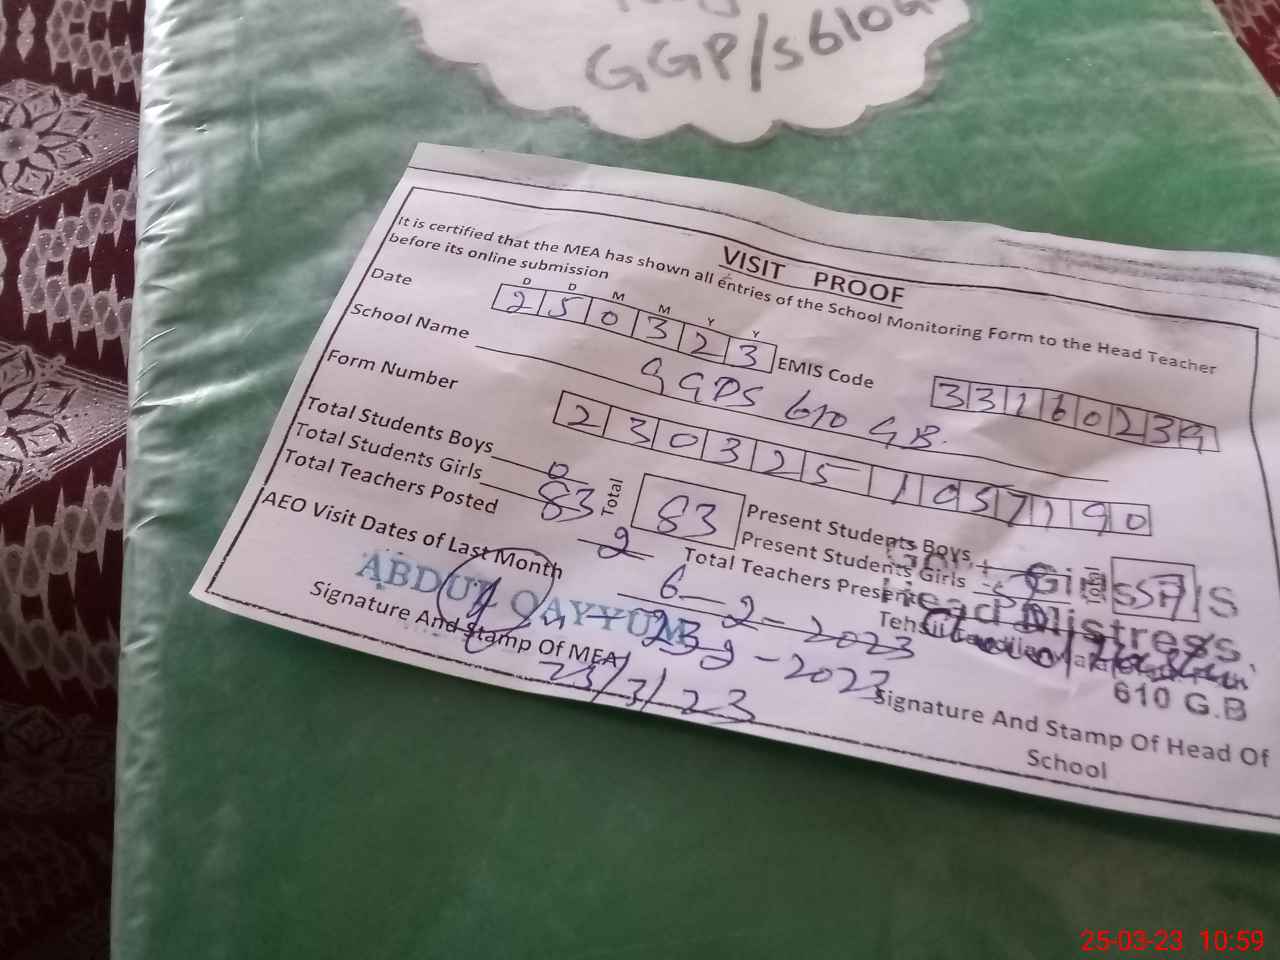 GGP/S610G
VISIT PROOF
It is certified that the MEA has shown all entries of the School Monitoring Form to the Head Teacher
before its online submission
D D M M Y Y
Date 2 5 0 3 2 3 EMIS Code 3 3 1 6 0 2 3 9
School Name GGPS 610 GB.
Form Number 2 3 0 3 2 5 1 0 5 7 1 9 0
Total Students Boys 0 Total 83 Present Students Boys
Total Students Girls 83 Present Students Girls 57
Total Teachers Posted 2 Total Teachers Present
AEO Visit Dates of Last Month 6-2-2023
23-2-2023
ABDUL QAYYUM
Head Mistress.
610 G.B
Signature And Stamp Of MEA
Signature And Stamp Of Head Of
School
25-03-23 10:59